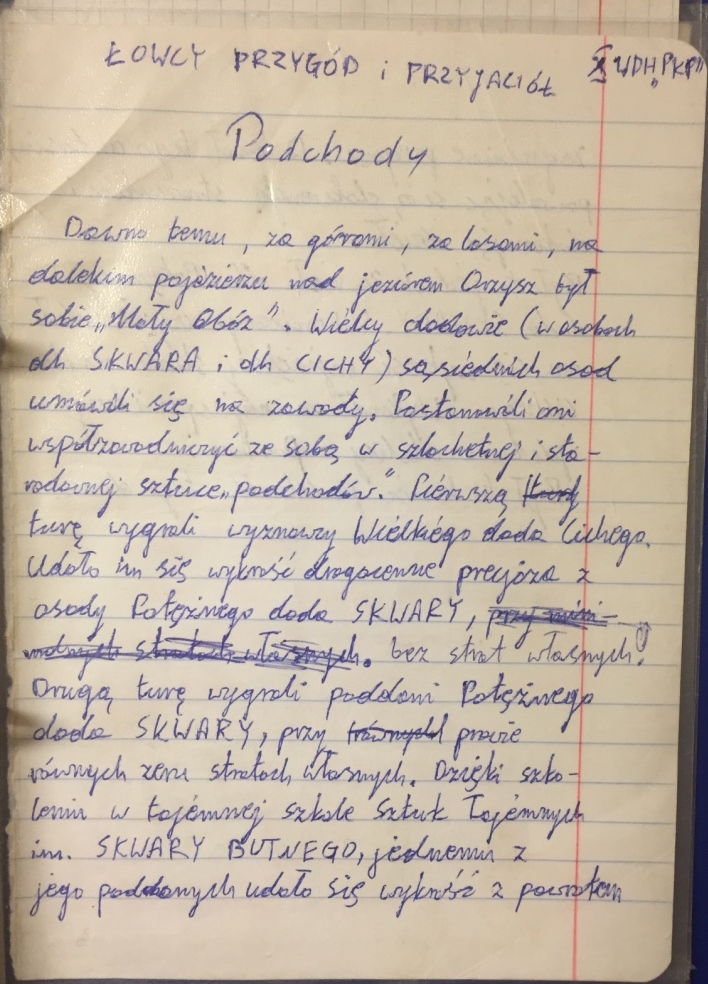 ŁOWCY PRZYGÓD i PRZYJACIÓŁ X WDH „PKP”
Podchody
Dawno temu, za górami, za lasami, na
dalekim pojezierzu nad jeziorem Orzysz był
sobie „Mały Obóz”. Wielcy dadowie (w osobach
dh SKWARA i dh CICHY) sąsiednich osad
umówili się na zawody. Postanowili oni
współzawodniczyć ze sobą w szlachetnej i sta-
rodawnej sztuce „podchodów.” Pierwszą
turę wygrali wyznawcy Wielkiego dada Cichego.
Udało im się wykraść drogocenne precjoza z
osady Potężnego dada SKWARY, przy mini-
malnych stratach własnych. bez strat własnych!
Drugą turę wygrali poddani Potężnego
dada SKWARY, przy równych prawie
równych zeru stratach własnych. Dzięki szko-
leniu w tajemnej szkole Sztuk Tajemnych
im. SKWARY BUTNEGO, jednemu z
jego poddanych udało się wykraść z powrotem